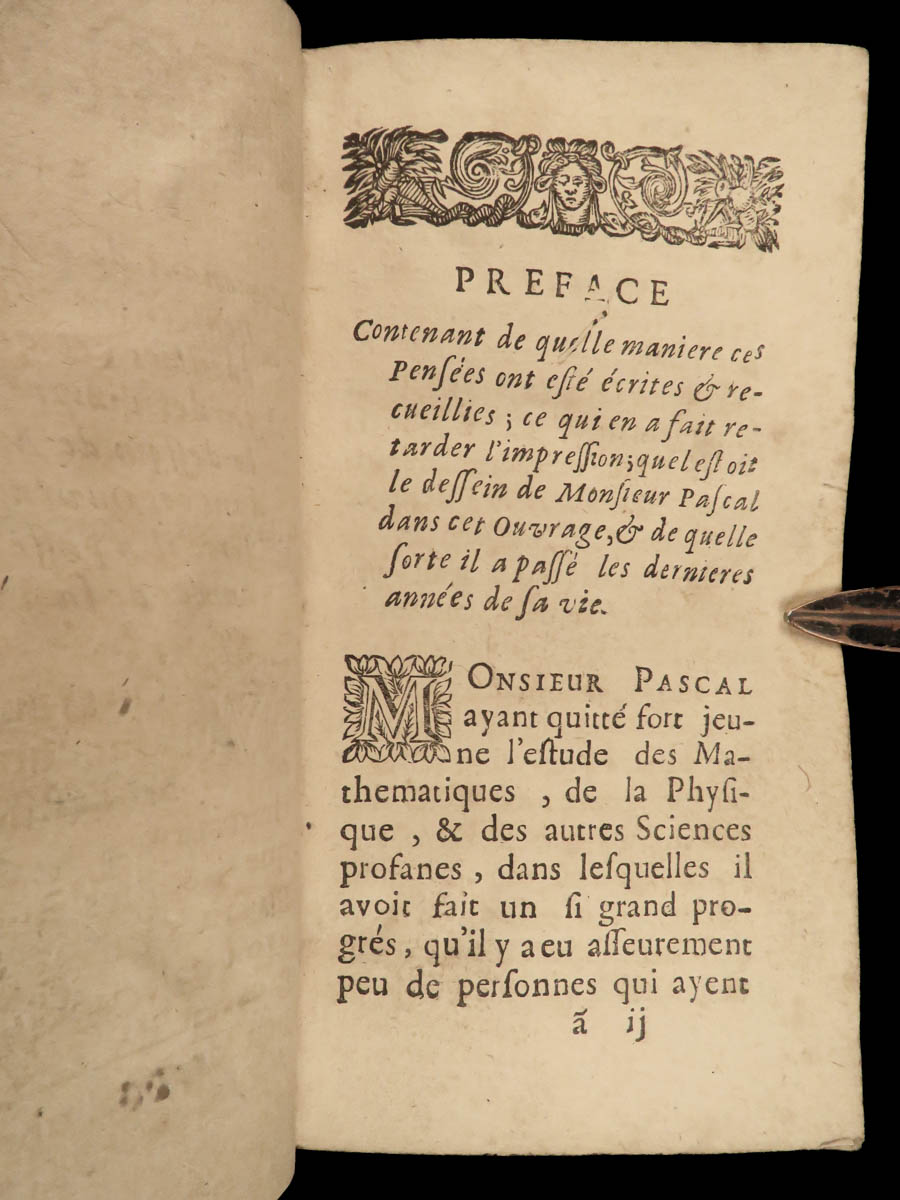 PREFACE
Contenant de quelle maniere ces
Penſées ont eſté écrites & re-
cueillies ; ce qui en a fait re-
tarder l'impreſſion ; quel eſtoit
le deſſein de Monſieur Paſcal
dans cet Ouvrage, & de quelle
ſorte il a paſſé les dernieres
années de ſa vie.
MONSIEUR PASCAL
ayant quitté fort jeu-
ne l'eſtude des Ma-
thematiques , de la Phyſi-
que , & des autres Sciences
profanes , dans leſquelles il
avoit fait un ſi grand pro-
grés , qu'il y a eu aſſeurement
peu de perſonnes qui ayent
ã ij